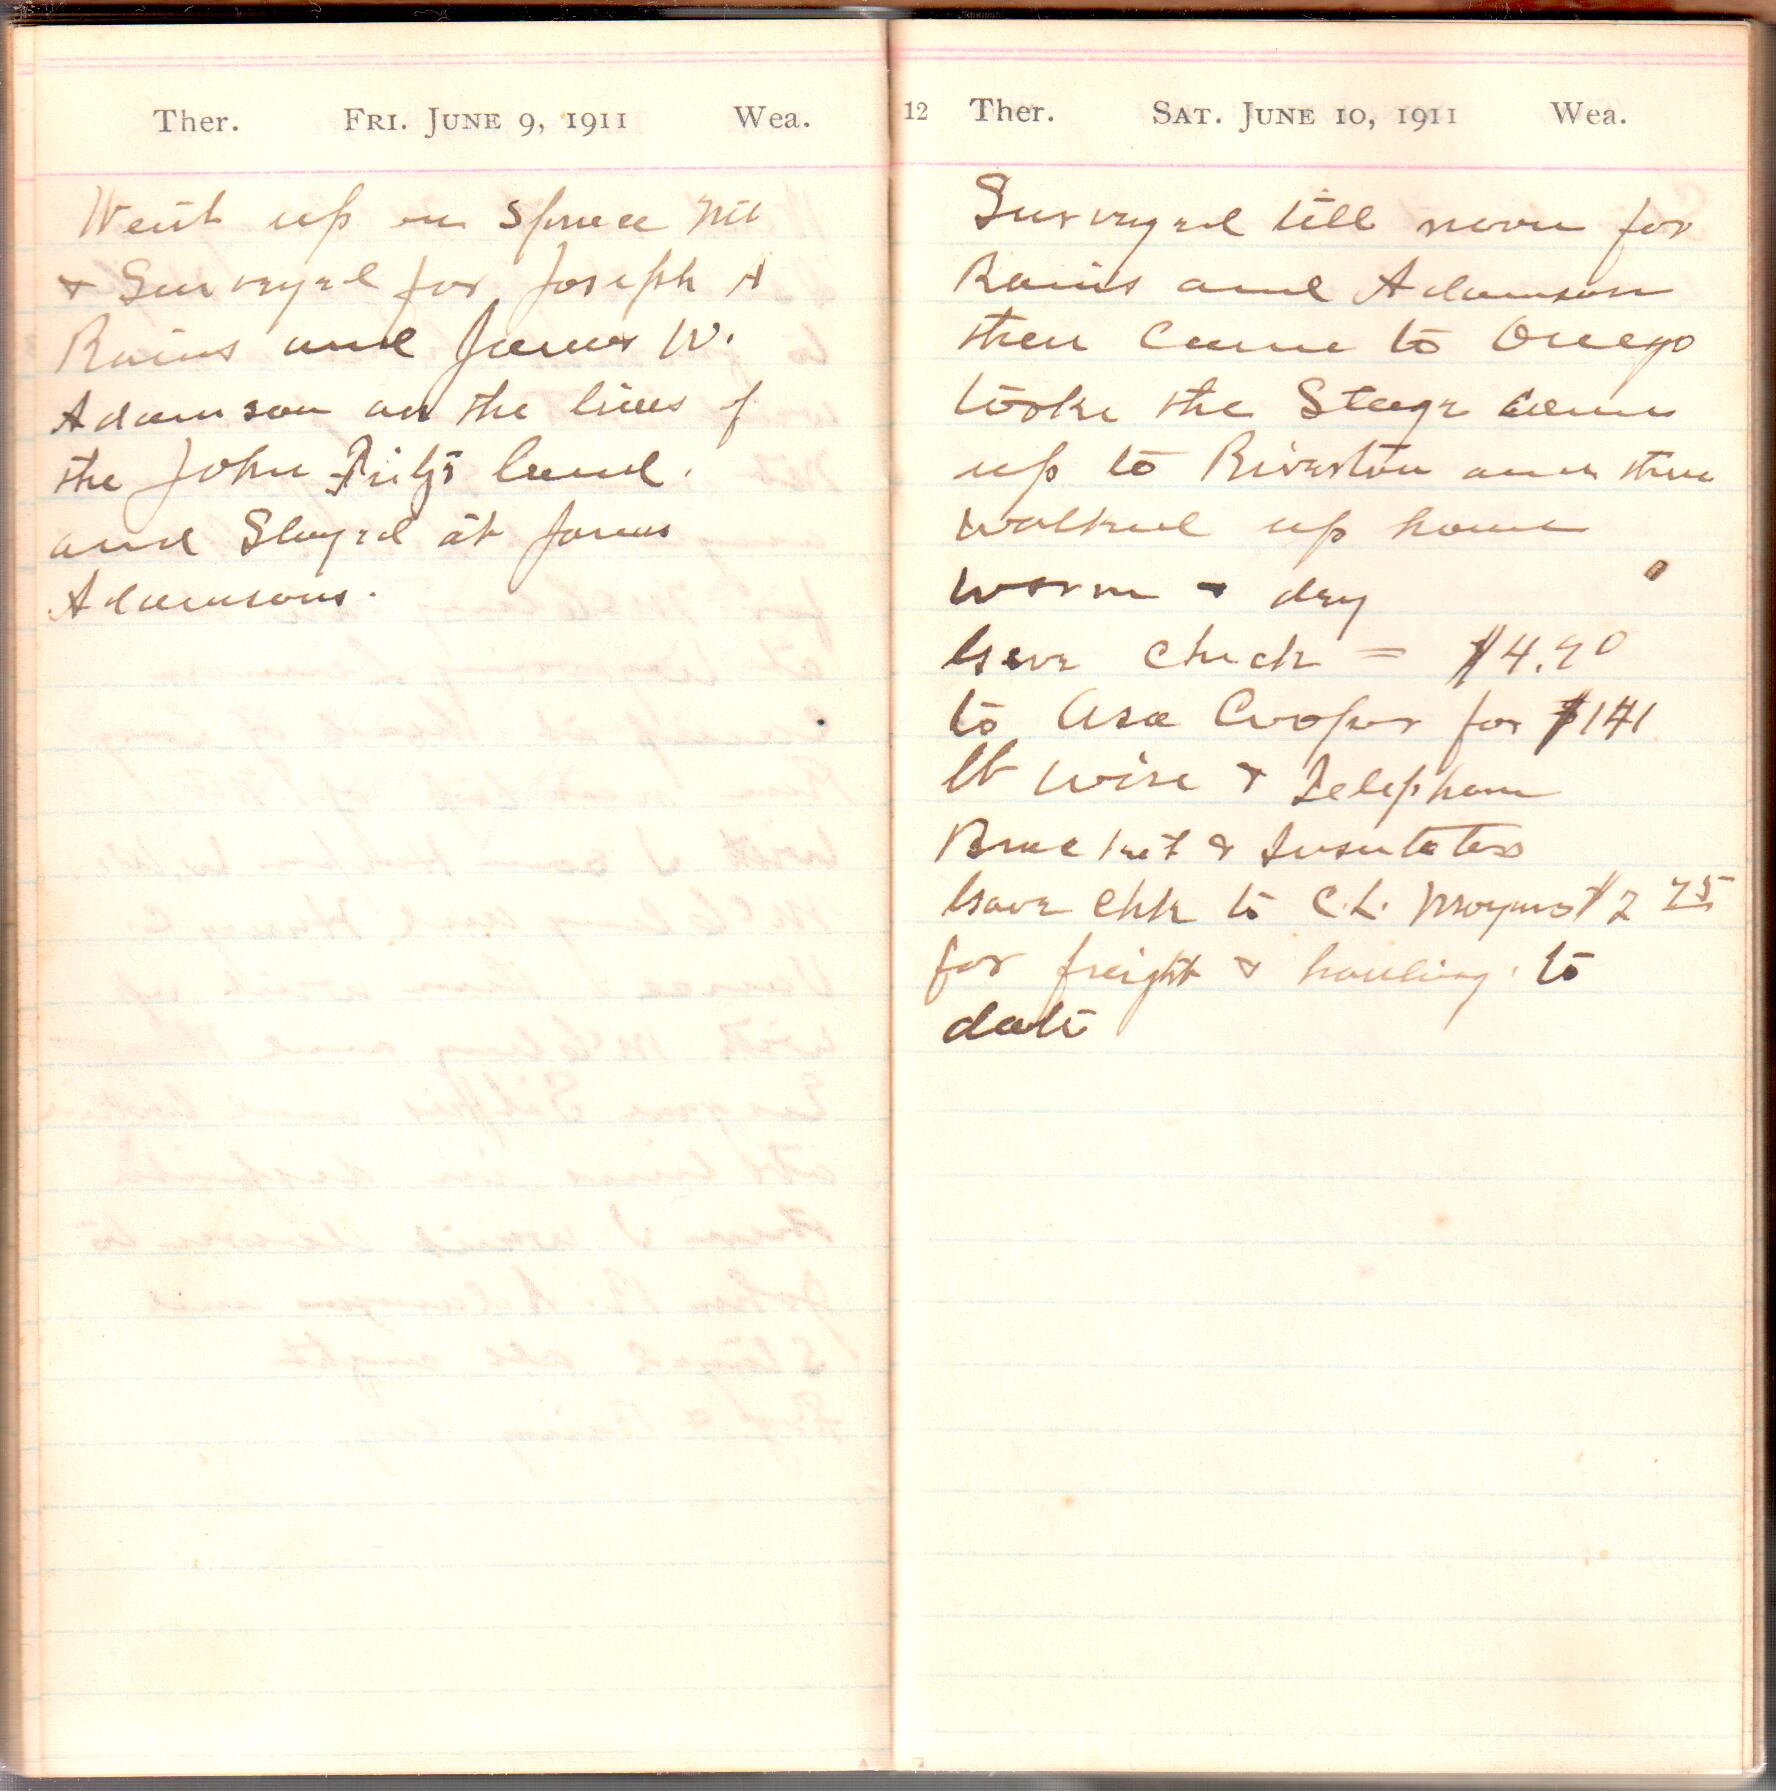 Ther. FRI. JUNE 9, 1911 Wea.
Went up on Spruce Mt
& Surveyed for Joseph A
Rains and James W.
Adamson on the lines of
the John Fritz land.
and Stayed at James
Adamsons.
12 Ther. SAT. JUNE 10, 1911 Wea.
Surveyed till noon for
Rains and Adamson
then Came to Onego
tooke the Stage Came
up to Riverton and then
walked up home
warm & dry
Gave check = $4.90
to Asa Cooper for $141
lb wire & Telephone
Bracket & Insulators
Gave Chk to C.L. $2 75
for freight & hauling to
date